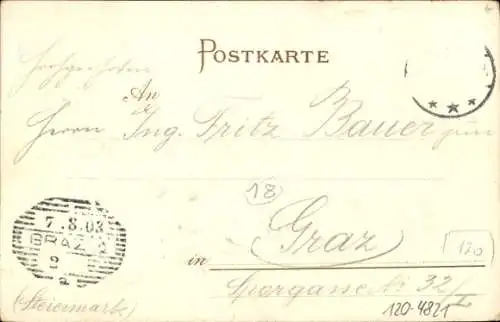 POSTKARTE
Hochgeboren
An
Herrn Ing. Fritz Bauer jun.
18
7.8.03
GRAZ 2
2
a
Graz
120
in
Sporgasse No 32/I
(Steiermark)
120-4821